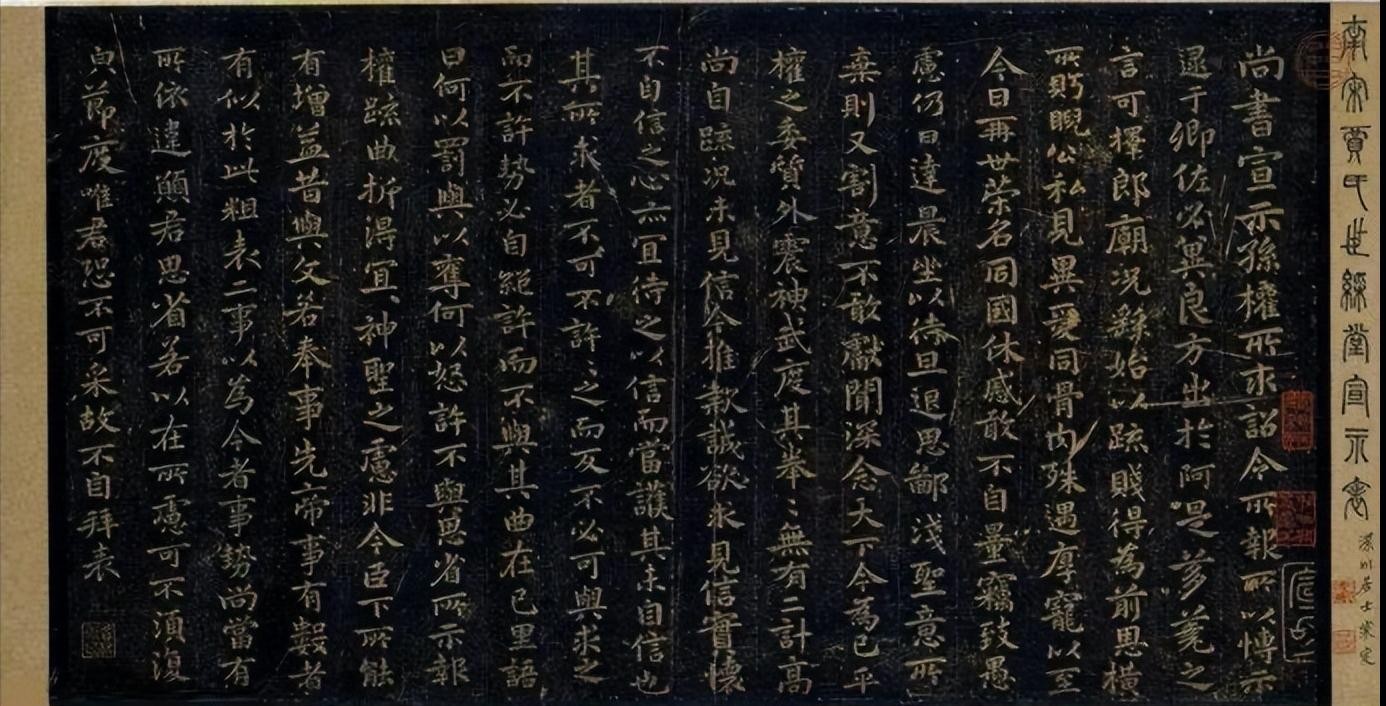 南宋賈氏世綵堂宣示表
尚書宣示孫權所求詔令所報所以博示
逮于卿佐必冀良方出於阿是芻蕘之
言可擇郎廟況繇始以疏賤得為前恩橫
所眄睨公私見異愛同骨肉殊遇厚寵以至
今日再世榮名同國休慼敢不自量竊致愚
慮仍日達晨坐以待旦退思鄙淺聖意所
棄則又割意不敢獻聞深念天下今為已平
權之委質外震神武度其拳〻無有二計高
尚自疏況未見信今推款誠欲求見信實懷
不自信之心亦宜待之以信而當護其未自信也
其所求者不可不許〻之而反不必可與求之
而不許勢必自絕許而不與其曲在己里語
曰何以罰與以奪何以怒許不與思省所示報
權疏曲折得宜宜神聖之慮非今臣下所能
有增益昔與文若奉事先帝事有數者
有似於此粗表二事以為今者事勢尚當有
所依違願君思省若以在所慮可不須復
貞節度唯君恐不可采故不自拜表